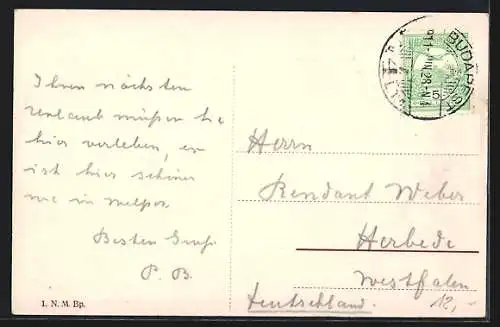 Ihren nächsten
Urlaub müssen Sie
hier verleben, es
ist hier schöner
wie in
Besten Gruß
P. B.
1. N. M. Bp.
BUDAPEST
911 JUN. 28
5
Herrn
Rendant Weber
Herbede
Westfalen
Deutschland.
12,-